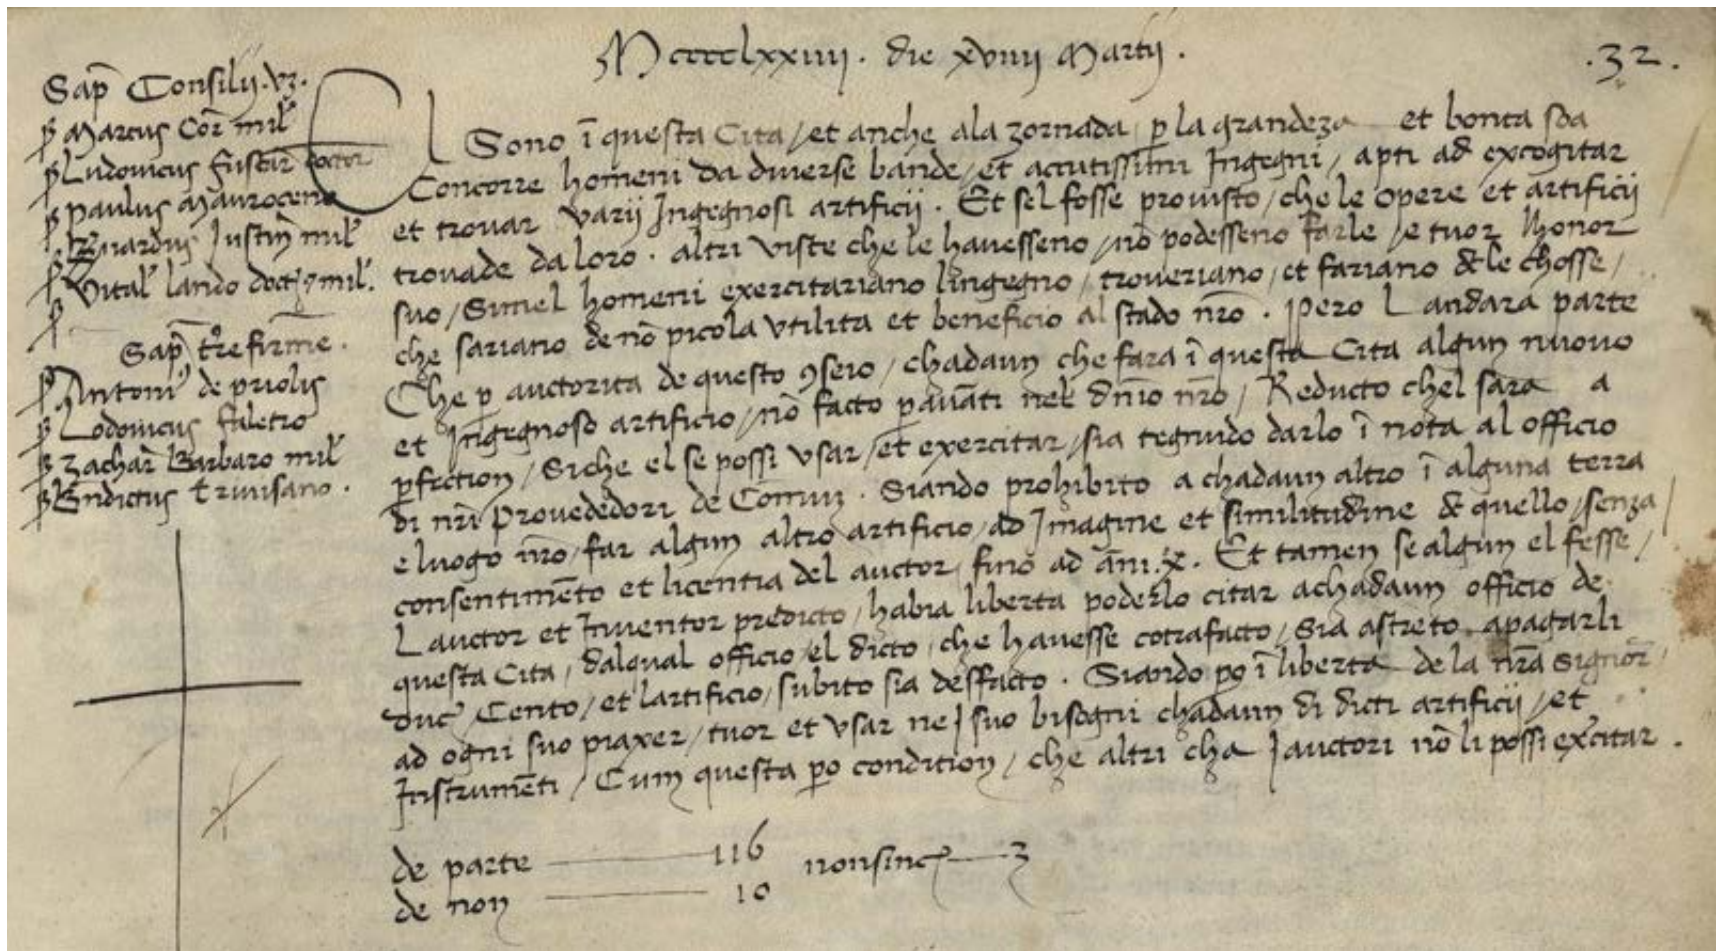 Mcccclxxiiij. die xviiij Martij.
.32.
Sap̄ Consilij.vz.
Marcus Cor̄ mil̄
Ludovicus fuscar̄ doctor
paulus Mauroceno
Bernardus Justin̄ mil̄
Vital̄ lando doct⁊ mil̄.
Sap̄ t̄re firme.
Antoni⁹ de priolis
Lodovicus faletro
Zachar̄ Barbaro mil̄
Bn̄dictus trivisano.
El Sono ī questa Cita / et anche ala zornada ꝑ la grandeza et bonta soa
Concorre homeni da diverse bande / et accutissimi Ingegni / apti ad excogitar
et trovar varij Ingegnosi artificij. Et sel fosse provisto / che le opere et artificij
trovade da loro. altri viste che le havesseno / nō podesseno farle / e tuor lhonor
suo / Simel homeni exercitariano lingegno / troveriano / et fariano de le chosse /
che sariano de nō picola utilita et beneficio al stado nr̄o. Pero Landara parte
Che ꝑ auctorita de questo ꝯseio / chadaun che fara ī questa Cita algun nuovo
et Ingegnoso artificio / nō facto ꝑ avāti nel dn̄io nr̄o / Reducto chel sara a
ꝑfection / Siche el se possi usar / et exercitar / sia tegnudo darlo ī nota al officio
di nr̄i Provededori de Comun. Siando prohibito a chadaun altro ī alguna terra
e luogo nr̄o / far algun altro artificio / ad Imagine et similitudine de quello / senza
consentimēto et licentia del auctor / fino ad āni .x. Et tamen se algun el fesse /
Lauctor et Inventor predicto / habia liberta poderlo citar a chadaun officio de
questa Cita / dalqual officio / el dicto / che havesse cōtrafacto / Sia astreto apagarli
Duc̄ Cento / et lartificio / subito sia desffacto. Siando ꝑo ī liberta de la nr̄a Signor̄ /
ad ogni suo piaxer / tuor et usar ne J suo bisogni chadaun di dicti artificij / et
Instrumēti / Cum questa ꝑo condition / che altri cha J auctori nō li possi exercitar.
de parte 116 nonsinc̄ 3
de non 10